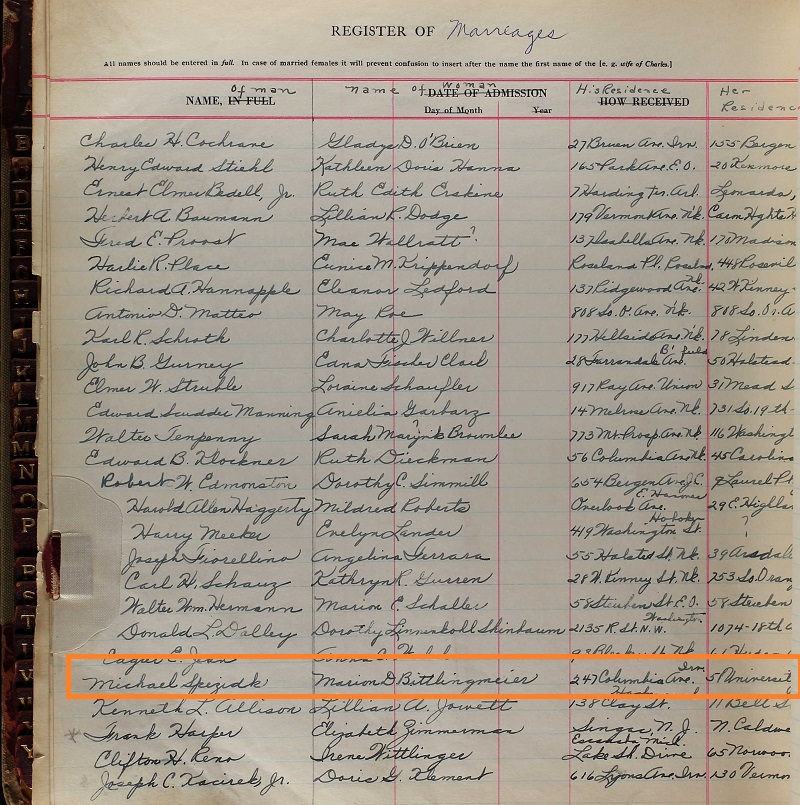 REGISTER OF Marreages
All names should be entered in full. In case of married females it will prevent confusion to insert after the name the first name of the [e. g. wife of Charles.]
of man name of woman His Residence Her
NAME, IN FULL DATE OF ADMISSION HOW RECEIVED Residence
Day of Month Year
Charles H. Cochrane Gladys D. O'Brien 27 Bruen Ave. Irv. 155 Bergen
Henry Edward Stiehl Kathleen Doris Hanna 165 Park Ave. E.O. 20 Kenmore
Ernest Elmer Bedell, Jr. Ruth Edith Erskine 7 Harding Ter. Arl. Leonardo,
Herbert A. Baumann Lillian R. Dodge 179 Vermont Ave. Nk.
Fred E. Proost Mae Wallratt? 137 Isabella Ave. Nk. 170 Madison
Harlie R. Place Eunice M. Krippendorf Roseland Pl. 448 Rosevil
Richard A. Hannapple Eleanor Ledford 137 Ridgewood Ave. Nk. 42 W. Kinney
Antonio D. Matteo May Roe 808 So. O. Ave. Nk. 808 So. O. A
Karl R. Schroth Charlotte J. Willner 177 Hillside Ave. Nk. 78 Linden
John B. Gurney Edna Fischer Clark 28 Farrandale Ave. B'field 50 Halstead
Elmer W. Struble Loraine Schaufler 917 Ray Ave. Union 31 Mead S
Edward Scudder Manning Anielia Garbarz 14 Melrose Ave. Nk. 731 So. 19th
Walter Tenpenny Sarah Brownlee 773 Mt. Prosp Ave. Nk. 116 Washingt
Edward B. Klockner Ruth Dieckman 56 Columbia Ave. Nk. 45 Carolina
Robert W. Edmonston Dorothy C. Simmill 654 Bergen Ave J.C. Laurel Pl.
Harold Allen Haggerty Mildred Roberts Overlook Ave. E. Hanover 29 E. Highla
Harry Meeker Evelyn Lander 419 Washington St. Hoboken ?
Joseph Fiorellino Angelina Ferrara 55 Halsted St. Nk. 39
Carl H. Schauz Kathryn R. Gurren 28 W. Kinney St. Nk. 753 So. Oran
Walter Wm. Hermann Marion E. Schaller 58 Steuben St. E.O. 58 Steuben
Donald L. Dalley Dorothy Linnenkohl Shinbaum 2135 R. St. N.W. Washington 1074-18th
Michael Spizidk Marion D. Bittlingmeier 247 Columbia Ave. Irv. 51 Universit
Kenneth L. Allison Lillian A. Jowett 138 Clay St. 11 Bell S
Frank Harper Elizabeth Zimmerman Singac, N. J. N. Caldwe
Clifton H. Reno Irene Wittlinger Escanaba Mich. Lake Sh. Drive 65 Norwoo
Joseph C. Kacirek, Jr. Doris G. Klement 616 Lyons Ave. Irv. 130 Vermo